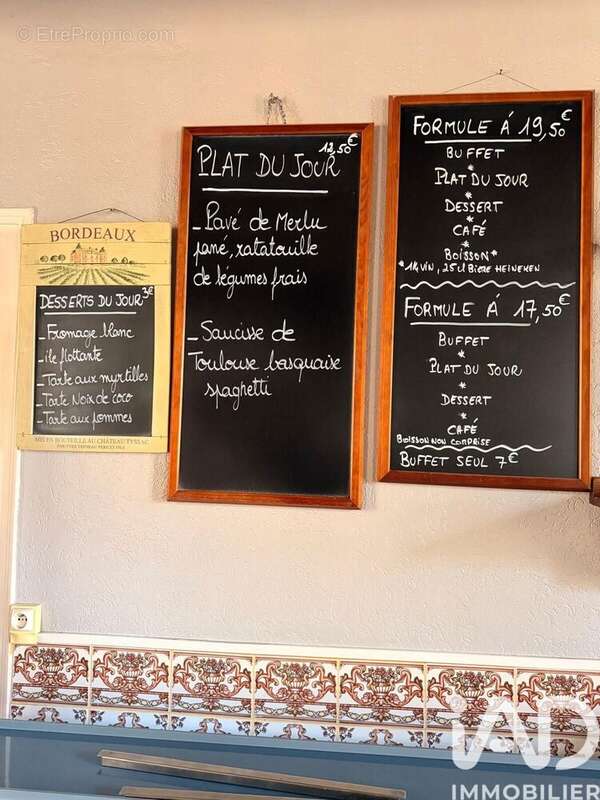 © EtreProprio.com
BORDEAUX
DESSERTS DU JOUR 3€
- Fromage blanc
- île flottante
- Tarte aux myrtilles
- Tarte Noix de coco
- Tarte aux pommes
MIS EN BOUTEILLE AU CHÂTEAU
12,50€
PLAT DU JOUR
- Pavé de Merlu
pané, ratatouille
de légumes frais
- Saucisse de
Toulouse basquaise
spaghetti
FORMULE À 19,50€
BUFFET
*
PLAT DU JOUR
*
DESSERT
*
CAFÉ
*
BOISSON*
*1/4 VIN, 25 cl BIÈRE HEINEKEN
FORMULE À 17,50€
BUFFET
*
PLAT DU JOUR
*
DESSERT
*
CAFÉ
BOISSON NON COMPRISE
BUFFET SEUL 7€
iAD
IMMOBILIER